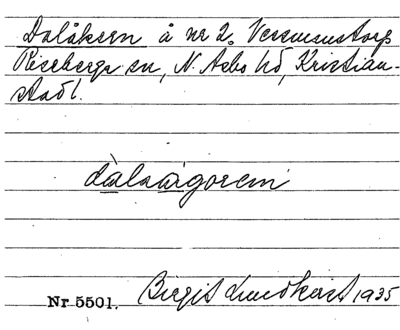 Dalåkern å nr 2. Versmesstorp
Riseberga sn, N. Åsbo hd, Kristian-
stads l.
dàlaågorem
Nr 5501. Birgit Lundkvist 1935